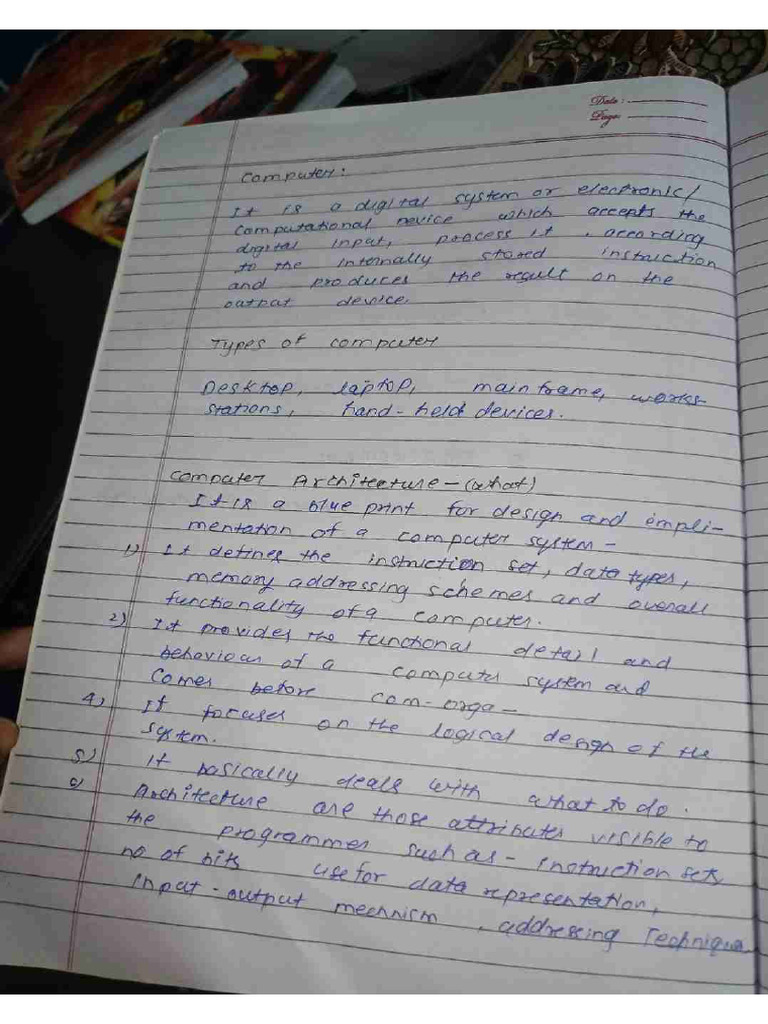 Date:
Page:
Computer:
It is a digital system or electronic/
computational device which accepts the
digital input, process it, according
to the internally stored instruction
and produces the result on the
output device.
Types of computer
Desktop, laptop, mainframe, works-
stations, hand-held devices.
Computer Architecture - (what)
It is a blue print for design and empli-
mentation of a computer system -
1) It defines the instruction set, data types,
memory addressing schemes and overall
functionality of a computer.
2) It provides the functional detail and
behaviour of a computer system and
comes before com-orga -
4) It focuses on the logical design of the
system.
5) It basically deals with what to do.
Architecture are those attributes visible to
the programmer such as - instruction sets,
no of bits use for data representation,
input-output mechnism, addressing Technique